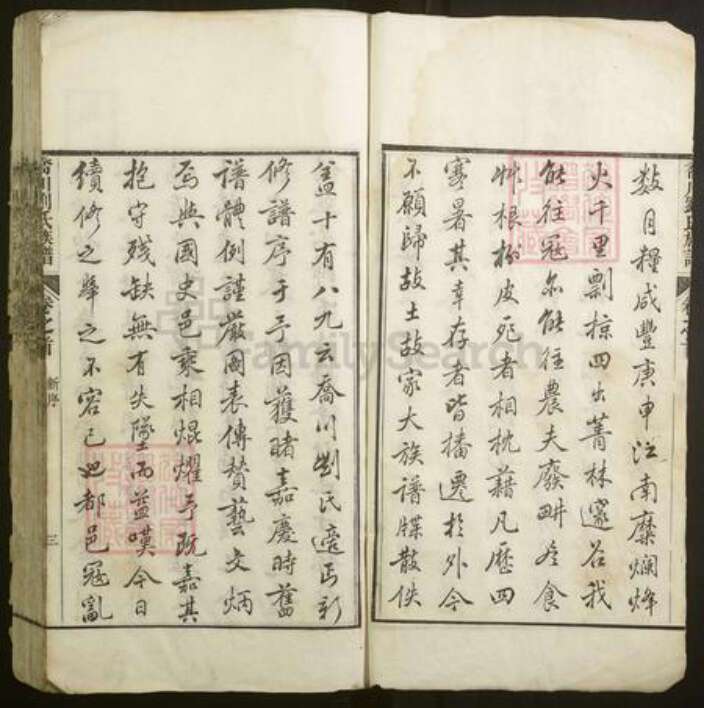 數月糧咸豐庚申江南糜爛烽
火千里剽掠四出菁林邃谷我
能往冠亦能往農夫廢畊爰食
艸根松皮死者相枕藉凡歷四
寒暑其幸存者皆播遷於外今
不願歸故土故家大族譜牒散佚
蓋十有八九云喬川劉氏適正新
修譜序于予因獲睹嘉慶時舊
譜體例謹嚴圖表傳贊藝文炳
焉與國史邑乘相焜燿予既嘉其
抱守殘缺無有失墜而益嘆今日
續修之舉之不容已也都邑冠亂
喬川劉氏族譜 卷之首 新序 三
FamilySearch